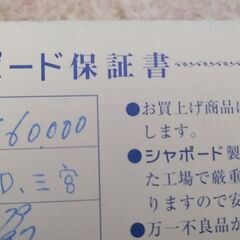 ード保証書
60000
D、三宮
●お買上げ商品に
します。
●シャボード製
た工場で厳重
りますので安
●万一不良品が